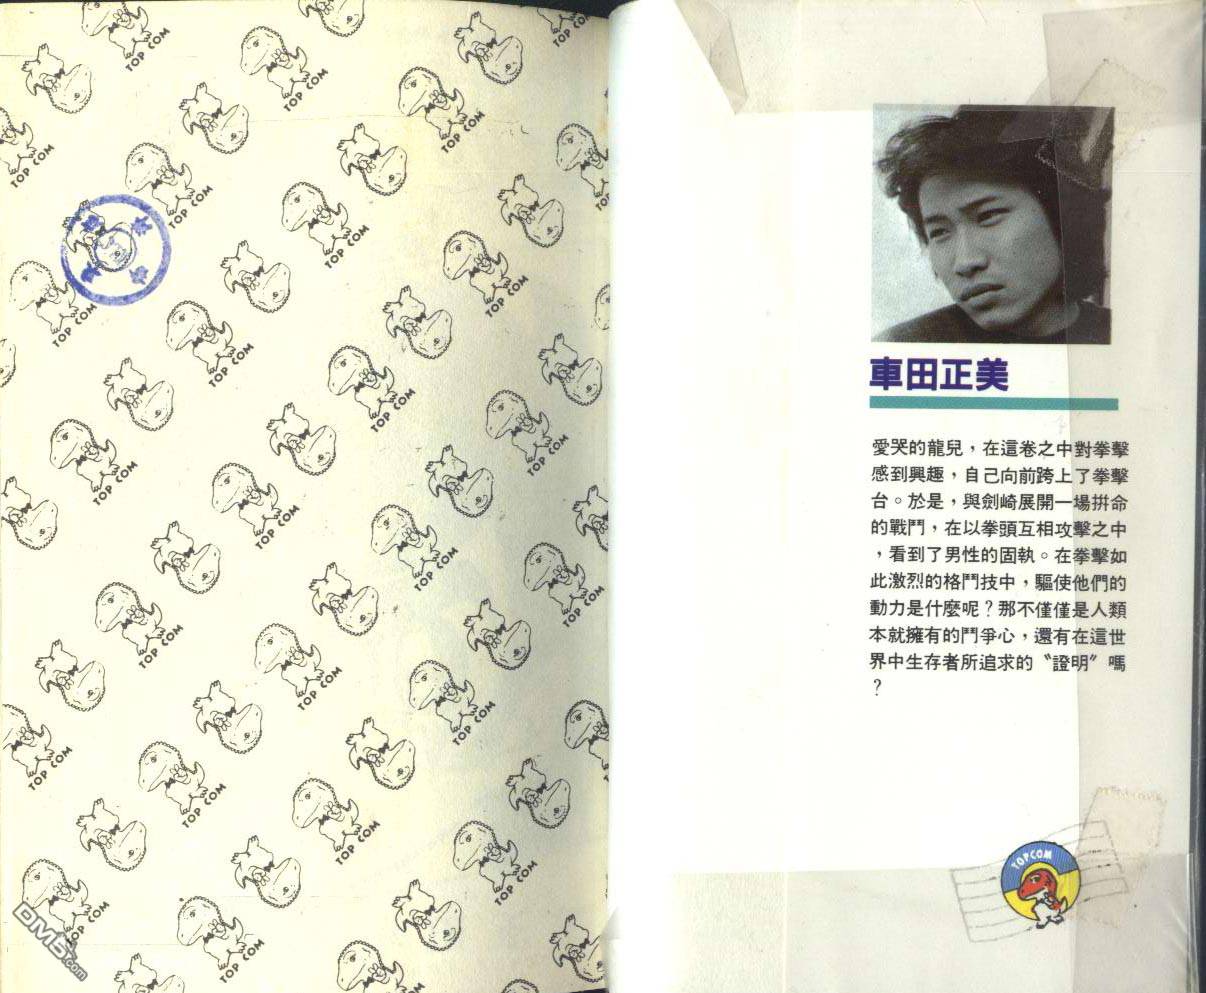 TOP COM
車田正美
愛哭的龍兒，在這卷之中對拳擊
感到興趣，自己向前跨上了拳擊
台。於是，與劍崎展開一場拚命
的戰鬥，在以拳頭互相攻擊之中
，看到了男性的固執。在拳擊如
此激烈的格鬥技中，驅使他們的
動力是什麼呢？那不僅僅是人類
本就擁有的鬥爭心，還有在這世
界中生存者所追求的〝證明〞嗎
？
TOPCOM
DM5.com